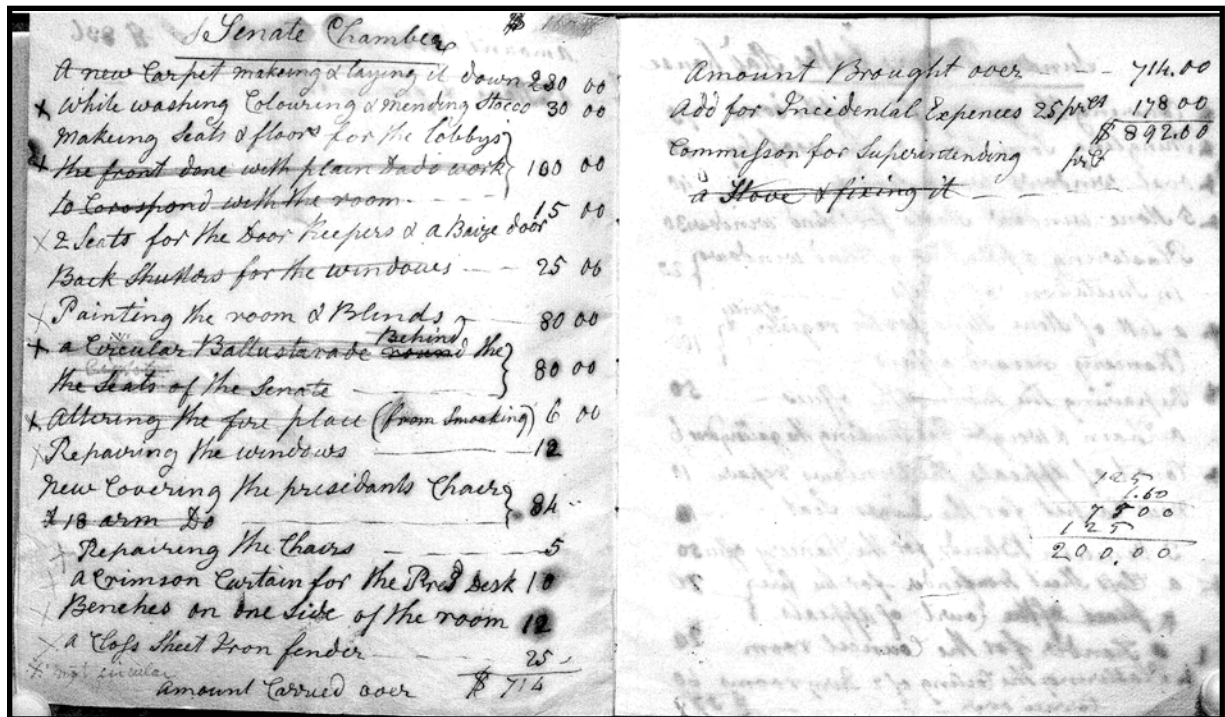 Senate Chamber
A new Carpet makeing & laying it down 230 00
x White washing Colouring & mending Stocco 30 00
Makeing Seats & floors for the lobbys
x the front done with plain Dado work 100 00
to Corospond with the room
x 2 Seats for the Door Keepers & a Baize door 15 00
Back Shutters for the windows 25 00
x Painting the room & Blinds 80 00
Behind
x a Circular Ballustarade round the
the Seats of the Senate 80 00
x Altering the fire place (from Smoaking) 6 00
x Repairing the windows 12
New Covering the presidants Chair
& 18 arm Do 84
x Repairing the Chairs 5
a Crimson Curtain for the Presd Desk 10
x Benches on one Side of the room 12
x a Closs Sheet Iron fender 25
x not circular
Amount Carried over $ 714
Amount Brought over - 714.00
Add for Incidental Expences 25 prct 178 00
$ 892.00
Commisson for Superintending prct
a Stove & fixing it
125
1.60
7500
125
200.00